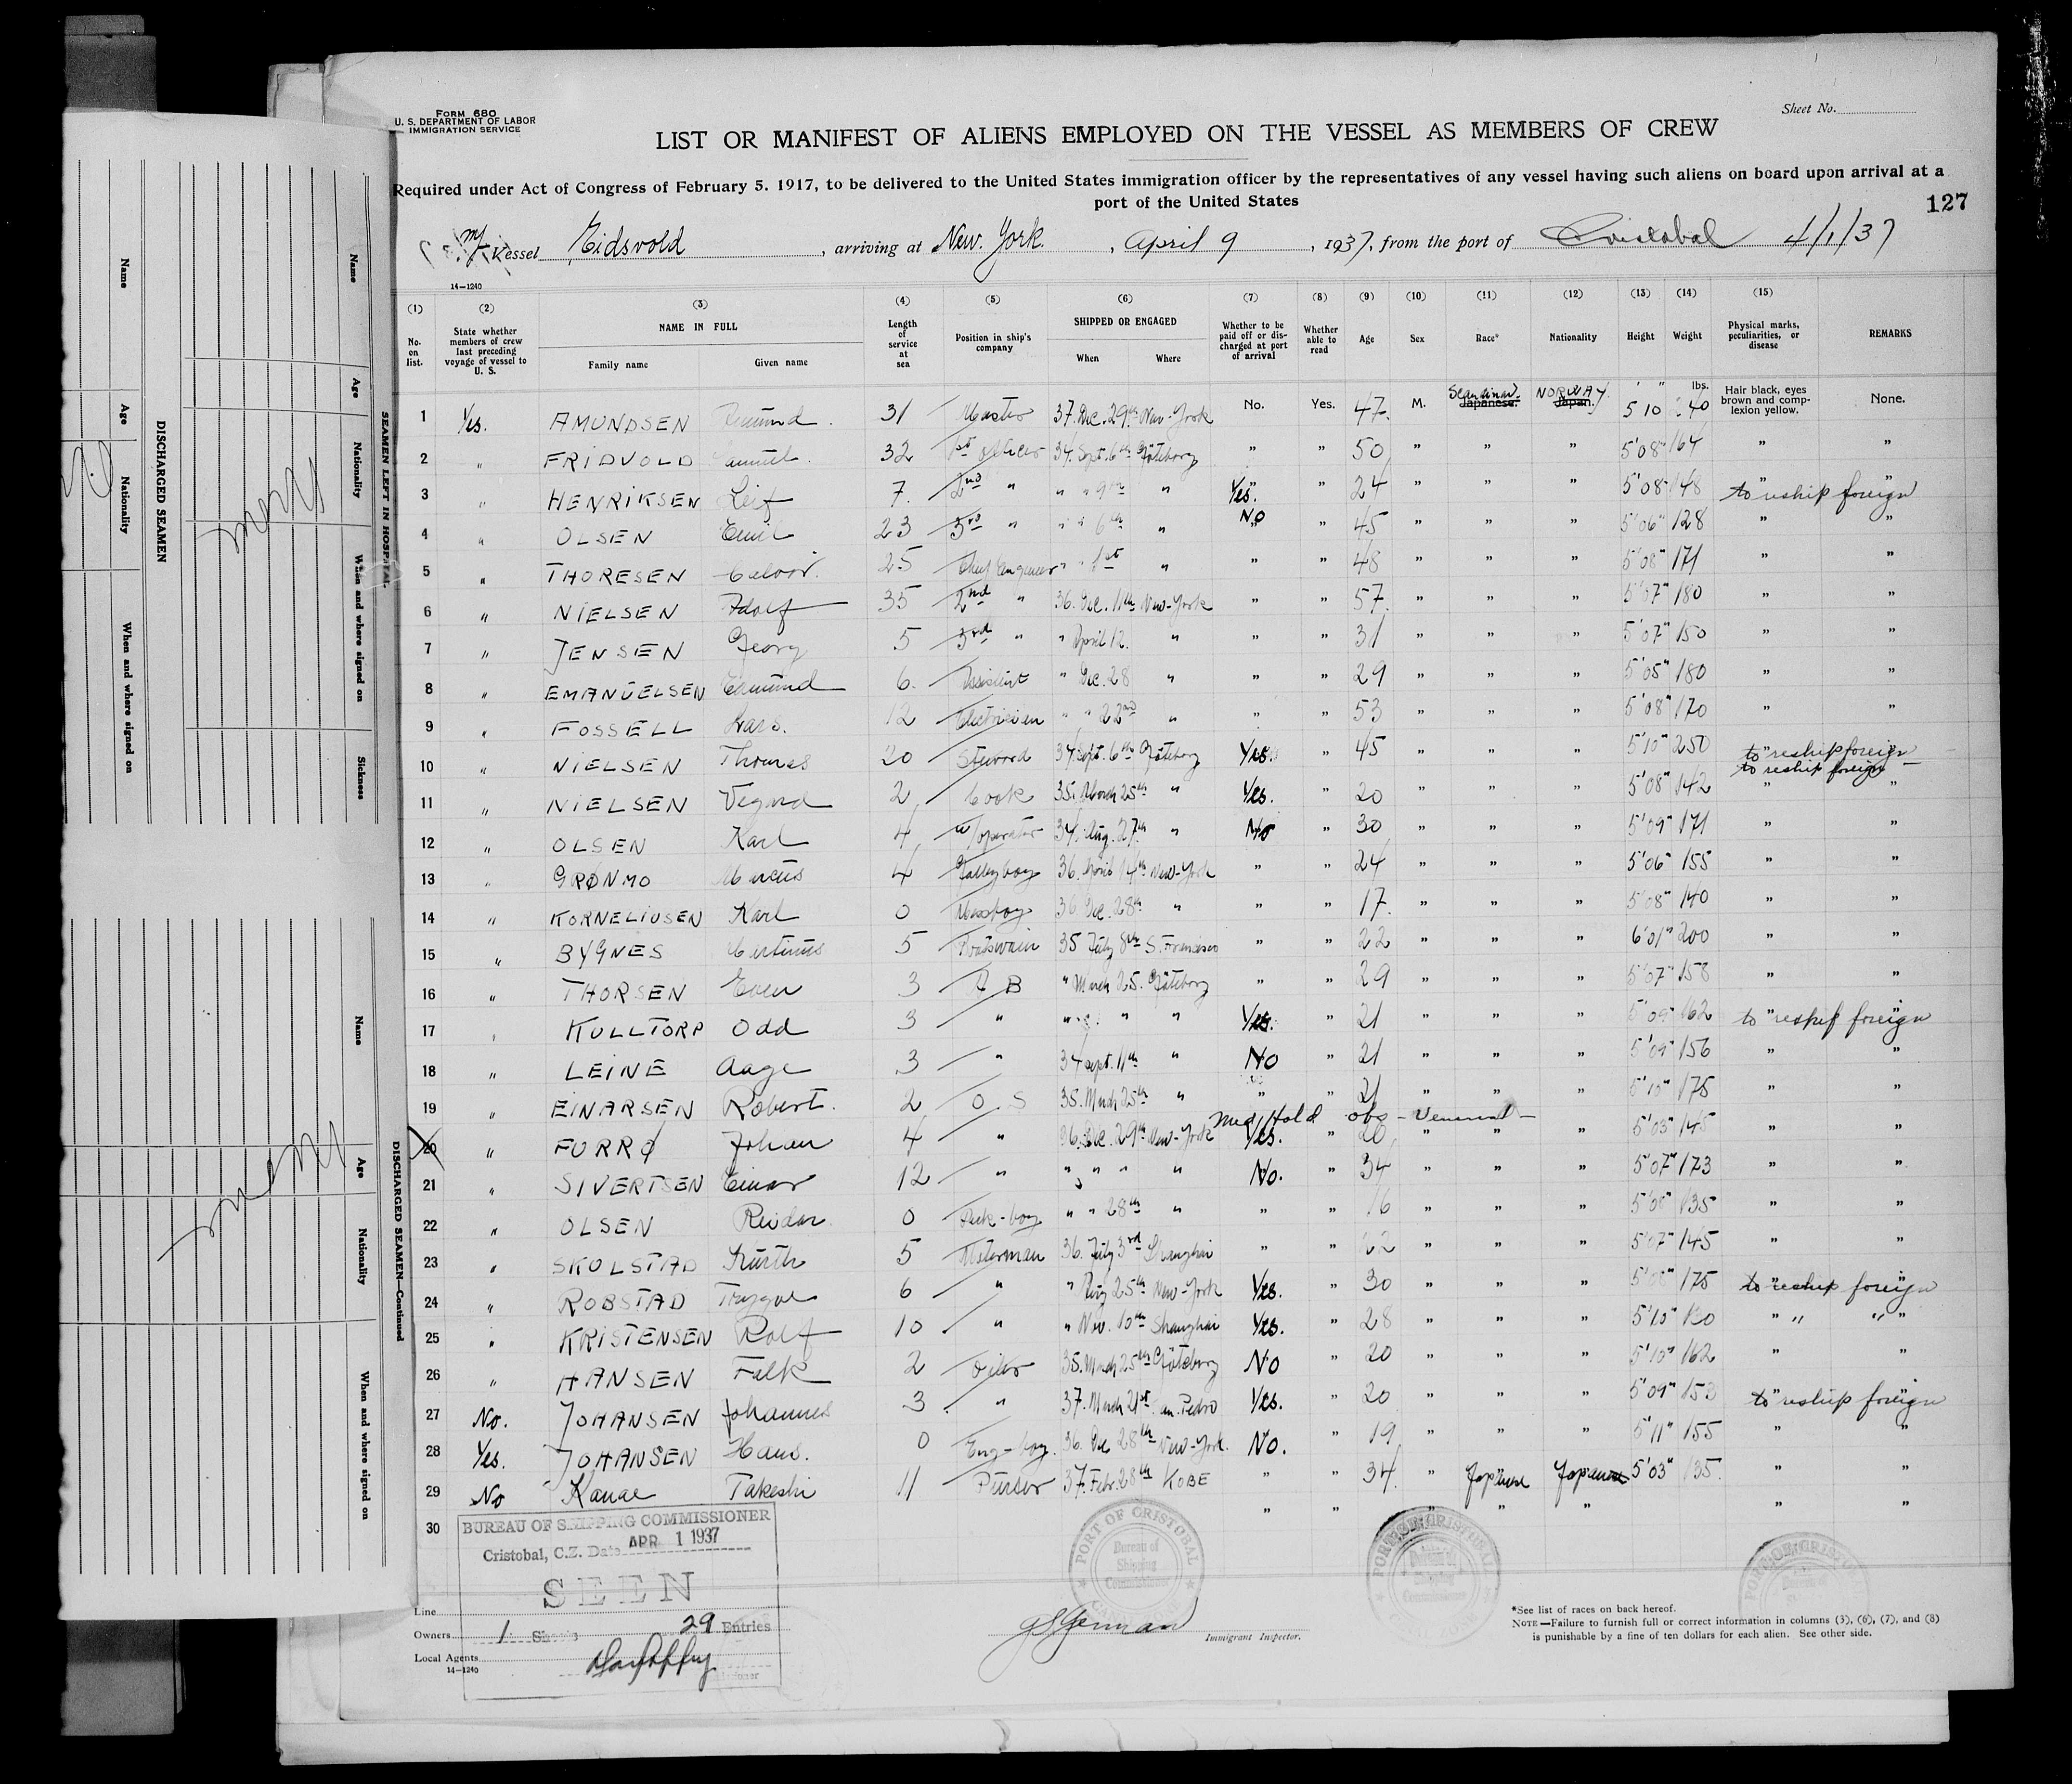 FORM 680
U. S. DEPARTMENT OF LABOR
IMMIGRATION SERVICE
Sheet No.
LIST OR MANIFEST OF ALIENS EMPLOYED ON THE VESSEL AS MEMBERS OF CREW
Required under Act of Congress of February 5, 1917, to be delivered to the United States immigration officer by the representatives of any vessel having such aliens on board upon arrival at a
port of the United States
127
Vessel Eidsvold, arriving at New York, April 9, 1937, from the port of Cristobal 4/1/37
14—1240
(1) (2) (3) (4) (5) (6) (7) (8) (9) (10) (11) (12) (13) (14) (15)
No. on list. State whether members of crew last preceding voyage of vessel to U. S. NAME IN FULL Family name Given name Length of service at sea Position in ship's company SHIPPED OR ENGAGED When Where Whether to be paid off or discharged at port of arrival Whether able to read Age Sex Race* Nationality Height Weight Physical marks, peculiarities, or disease REMARKS
1 Yes. AMUNDSEN 31 Master 37. Dec. 29th New-York No. Yes. 47 M. Scandinav. Japanese. NORWAY Japan. 5 10 lbs. Hair black, eyes brown and complexion yellow. None.
2 " FRIDVOLD 32 1st Officer 34. Sept. 6th Göteborg " " 50 " " " 5'08" 164 " "
3 " HENRIKSEN Leif 7. 2nd " " " 9th " Yes. " 24 " " " 5'08" 148 to reship foreign
4 " OLSEN Emil 23 3rd " " " 6th " No " 45 " " " 5'06" 128 " "
5 " THORESEN 25 Chief Engineer " " 1st " " " 48 " " " 5'08" 171 " "
6 " NIELSEN Adolf 35 2nd " 36. Dec. 11th New-York " " 57 " " " 5'07" 180 " "
7 " JENSEN Georg 5 3rd " " April 12. " " " 31 " " " 5'07" 150 " "
8 " EMANUELSEN Edmund 6. Assistent " Dec. 28 " " " 29 " " " 5'05" 180 " "
9 " FOSSELL Lars. 12 Electrician " " 22nd " " " 53 " " " 5'08" 170 " "
10 " NIELSEN Thomas 20 Steward 34. Sept. 6th Göteborg Yes. " 45 " " " 5'10" 250 to reship foreign
11 " NIELSEN 2 Cook 35. March 25th " Yes. " 20 " " " 5'08" 142 to reship foreign
12 " OLSEN Karl 4 W/operator 34. Aug. 27th " No " 30 " " " 5'09" 171 " "
13 " GRØNMO 4 Galleyboy 36. April 14th New-York " " 24 " " " 5'06" 155 " "
14 " KORNELIUSEN Karl 0 Messboy 36 Dec. 28th " " " 17. " " " 5'08" 140 " "
15 " BYGNES 5 Boatswain 35 July 8th S. Francisco " " 22 " " " 6'01" 200 " "
16 " THORSEN Even 3 A B " March 25. Göteborg " " 29 " " " 5'07" 158 " "
17 " KULLTORP Odd 3 " " " " " Yes. " 21 " " " 5'09" 162 to reship foreign
18 " LEINE Aage 3 " 34 Sept. 11th " No " 21 " " " 5'09" 156 " "
19 " EINARSEN Robert. 2 O. S 35. March 25th " " " 21 " " " 5'10" 175 " "
Med/Hold obs — Venereal —
20 " FURRØ Johan 4 " 36. Dec. 29th New-York Yes. " 20 " " " 5'03" 145 " "
21 " SIVERTSEN Einar 12 " " " " " No. " 34 " " " 5'07" 173 " "
22 " OLSEN Reidar 0 Deck-boy " " 28th " " " 16 " " " 135 " "
23 " SKOLSTAD 5 Motorman 36. July 3rd Shanghai " " 22 " " " 5'07" 145 " "
24 " ROBSTAD Trygve 6 " " Aug 25th New-York Yes. " 30 " " " 175 to reship foreign
25 " KRISTENSEN Rolf 10 " " Nov. 10th Shanghai Yes. " 28 " " " 5'10" 130 " " " "
26 " HANSEN Falk 2 Oiler 35. March 25th Göteborg No " 20 " " " 5'10" 162 " "
27 No. JOHANSEN Johannes 3. " 37. March 21st an. Pedro Yes. " 20 " " " 5'09" to reship foreign
28 Yes. JOHANSEN Hans. 0 Eng-boy. 36. Dec 28th New-York. No. " 19 " " " 5'11" 155 " "
29 No Kanae Takeshi 11 Purser 37. Febr. 28th KOBE " " 34. " Japanese Japanese 5'03" 135. " "
30 " " " " " " "
BUREAU OF SHIPPING COMMISSIONER
Cristobal, C.Z. Date APR 1 1937
SEEN
Line
Owners 1 29 Entries
Local Agents
14—1240
PORT OF CRISTOBAL
Bureau of
Shipping
Commissioner
PORT OF CRISTOBAL
Bureau of
Shipping
Commissioner
Immigrant Inspector.
*See list of races on back hereof.
NOTE.—Failure to furnish full or correct information in columns (3), (6), (7), and (8)
is punishable by a fine of ten dollars for each alien. See other side.
SEAMEN LEFT IN HOSPITAL
Name Age Nationality When and where signed on Sickness
DISCHARGED SEAMEN
Name Age Nationality When and where signed on
DISCHARGED SEAMEN—Continued
Name Age Nationality When and where signed on